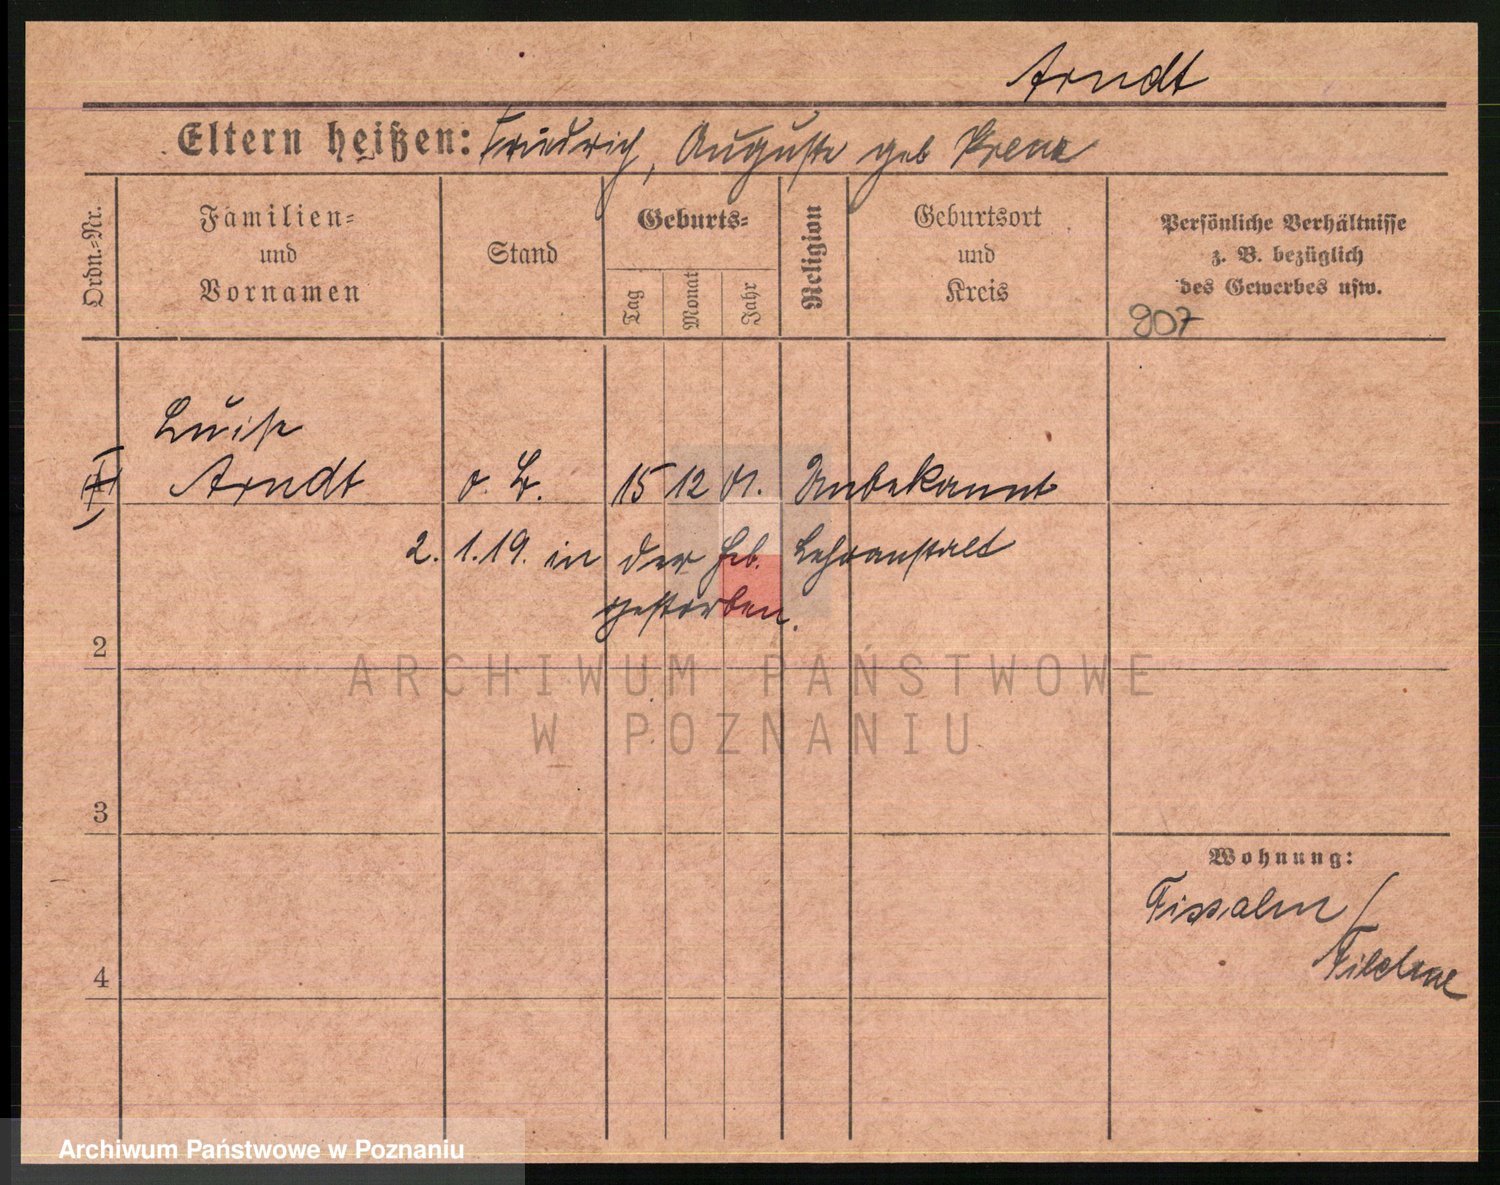 Arndt
Eltern heißen: Friedrich, Auguste geb
Ordn.-Nr.
Familien-
und
Vornamen
Stand
Geburts-
Tag
Monat
Jahr
Religion
Geburtsort
und
Kreis
Persönliche Verhältnisse
z. B. bezüglich
des Gewerbes usw.
907
Luise
Arndt
o. B. 15 12 01. Unbekannt
2. 1. 19. in der Heb. Lehranstalt
gestorben.
2
3
4
Wohnung:
Fissalm /
Filehne
ARCHIWUM PAŃSTWOWE
W POZNANIU
Archiwum Państwowe w Poznaniu